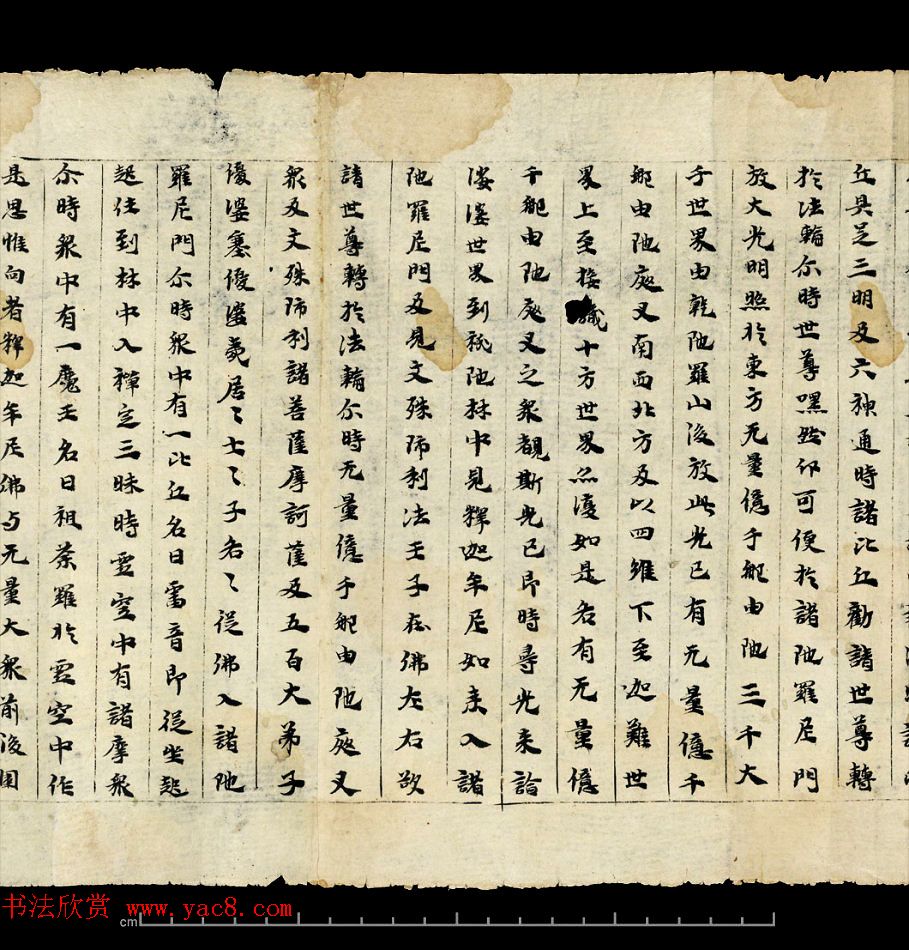 丘具足三明及六神通時諸比丘勸請世尊轉
於法輪尓時世尊嘿然印可便於諸陁羅尼門
放大光明照於東方无量億千那由陁三千大
千世界由乾陁羅山後放此光已有无量億千
那由陁夜叉南西北方及以四維下至迦難世
界上至接識十方世界亦復如是各有无量億
千那由陁夜叉之衆覩斯光已即時尋光来詣
娑婆世界到祇陁林中見釋迦牟尼如来入諸
陁羅尼門及見文殊師利法王子在佛左右欲
請世尊轉於法輪尓時无量億千那由陁夜叉
衆及文殊師利諸菩薩摩訶薩及五百大弟子
優婆塞優婆夷居〻士〻子各〻從佛入諸陁
羅尼門尓時衆中有一比丘名曰雷音即從坐起
起住到林中入禪定三昧時虛空中有諸摩衆
尓時衆中有一魔王名曰祖荼羅於虛空中作
是思惟向者釋迦牟尼佛与无量大衆前後圍
cm
书法欣赏 www.yac8.com